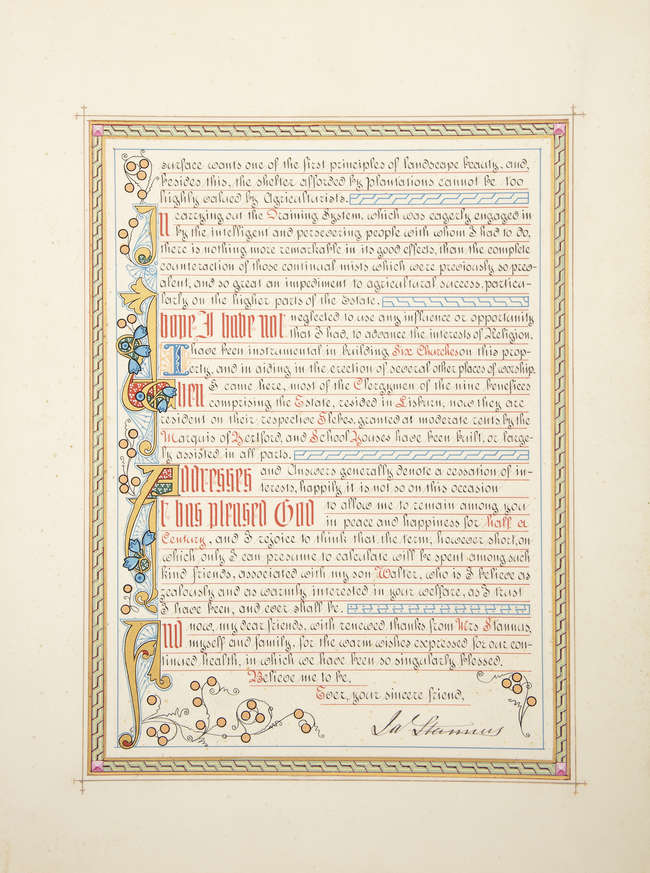 surface wants one of the first principles of landscape beauty, and,
besides this, the shelter afforded by plantations cannot be too
highly valued by Agriculturists.
In carrying out the Draining System, which was eagerly engaged in
by the intelligent and persevering people with whom I had to do,
there is nothing more remarkable in its good effects, than the complete
counteraction of those continual mists which were previously so prev-
alent, and so great an impediment to agricultural success, particu-
larly on the higher parts of the Estate.
I hope I have not neglected to use any influence or opportunity
that I had, to advance the interests of Religion.
I have been instrumental in building Six Churches on this prop-
erty, and in aiding in the erection of several other places of worship.
When I came here, most of the Clergymen of the nine benefices
comprising the Estate, resided in Lisburn, now they are
resident on their respective Glebes, granted at moderate rents by the
Marquis of Hertford, and School Houses have been built, or large-
ly assisted in all parts.
Addresses and Answers generally denote a cessation of in-
terests, happily it is not so on this occasion
It has pleased God to allow me to remain among you
in peace and happiness for half a
Century, and I rejoice to think that the term, however short, on
which only I can presume to calculate will be spent among such
kind friends, associated with my son Walter, who is I believe as
zealously and as warmly interested in your welfare, as I trust
I have been, and ever shall be.
And now, my dear friends, with renewed thanks from Mrs Stannus,
myself and family, for the warm wishes expressed for our con-
tinued health, in which we have been so singularly blessed.
Believe me to be,
Ever, your sincere friend,
Jas Stannus